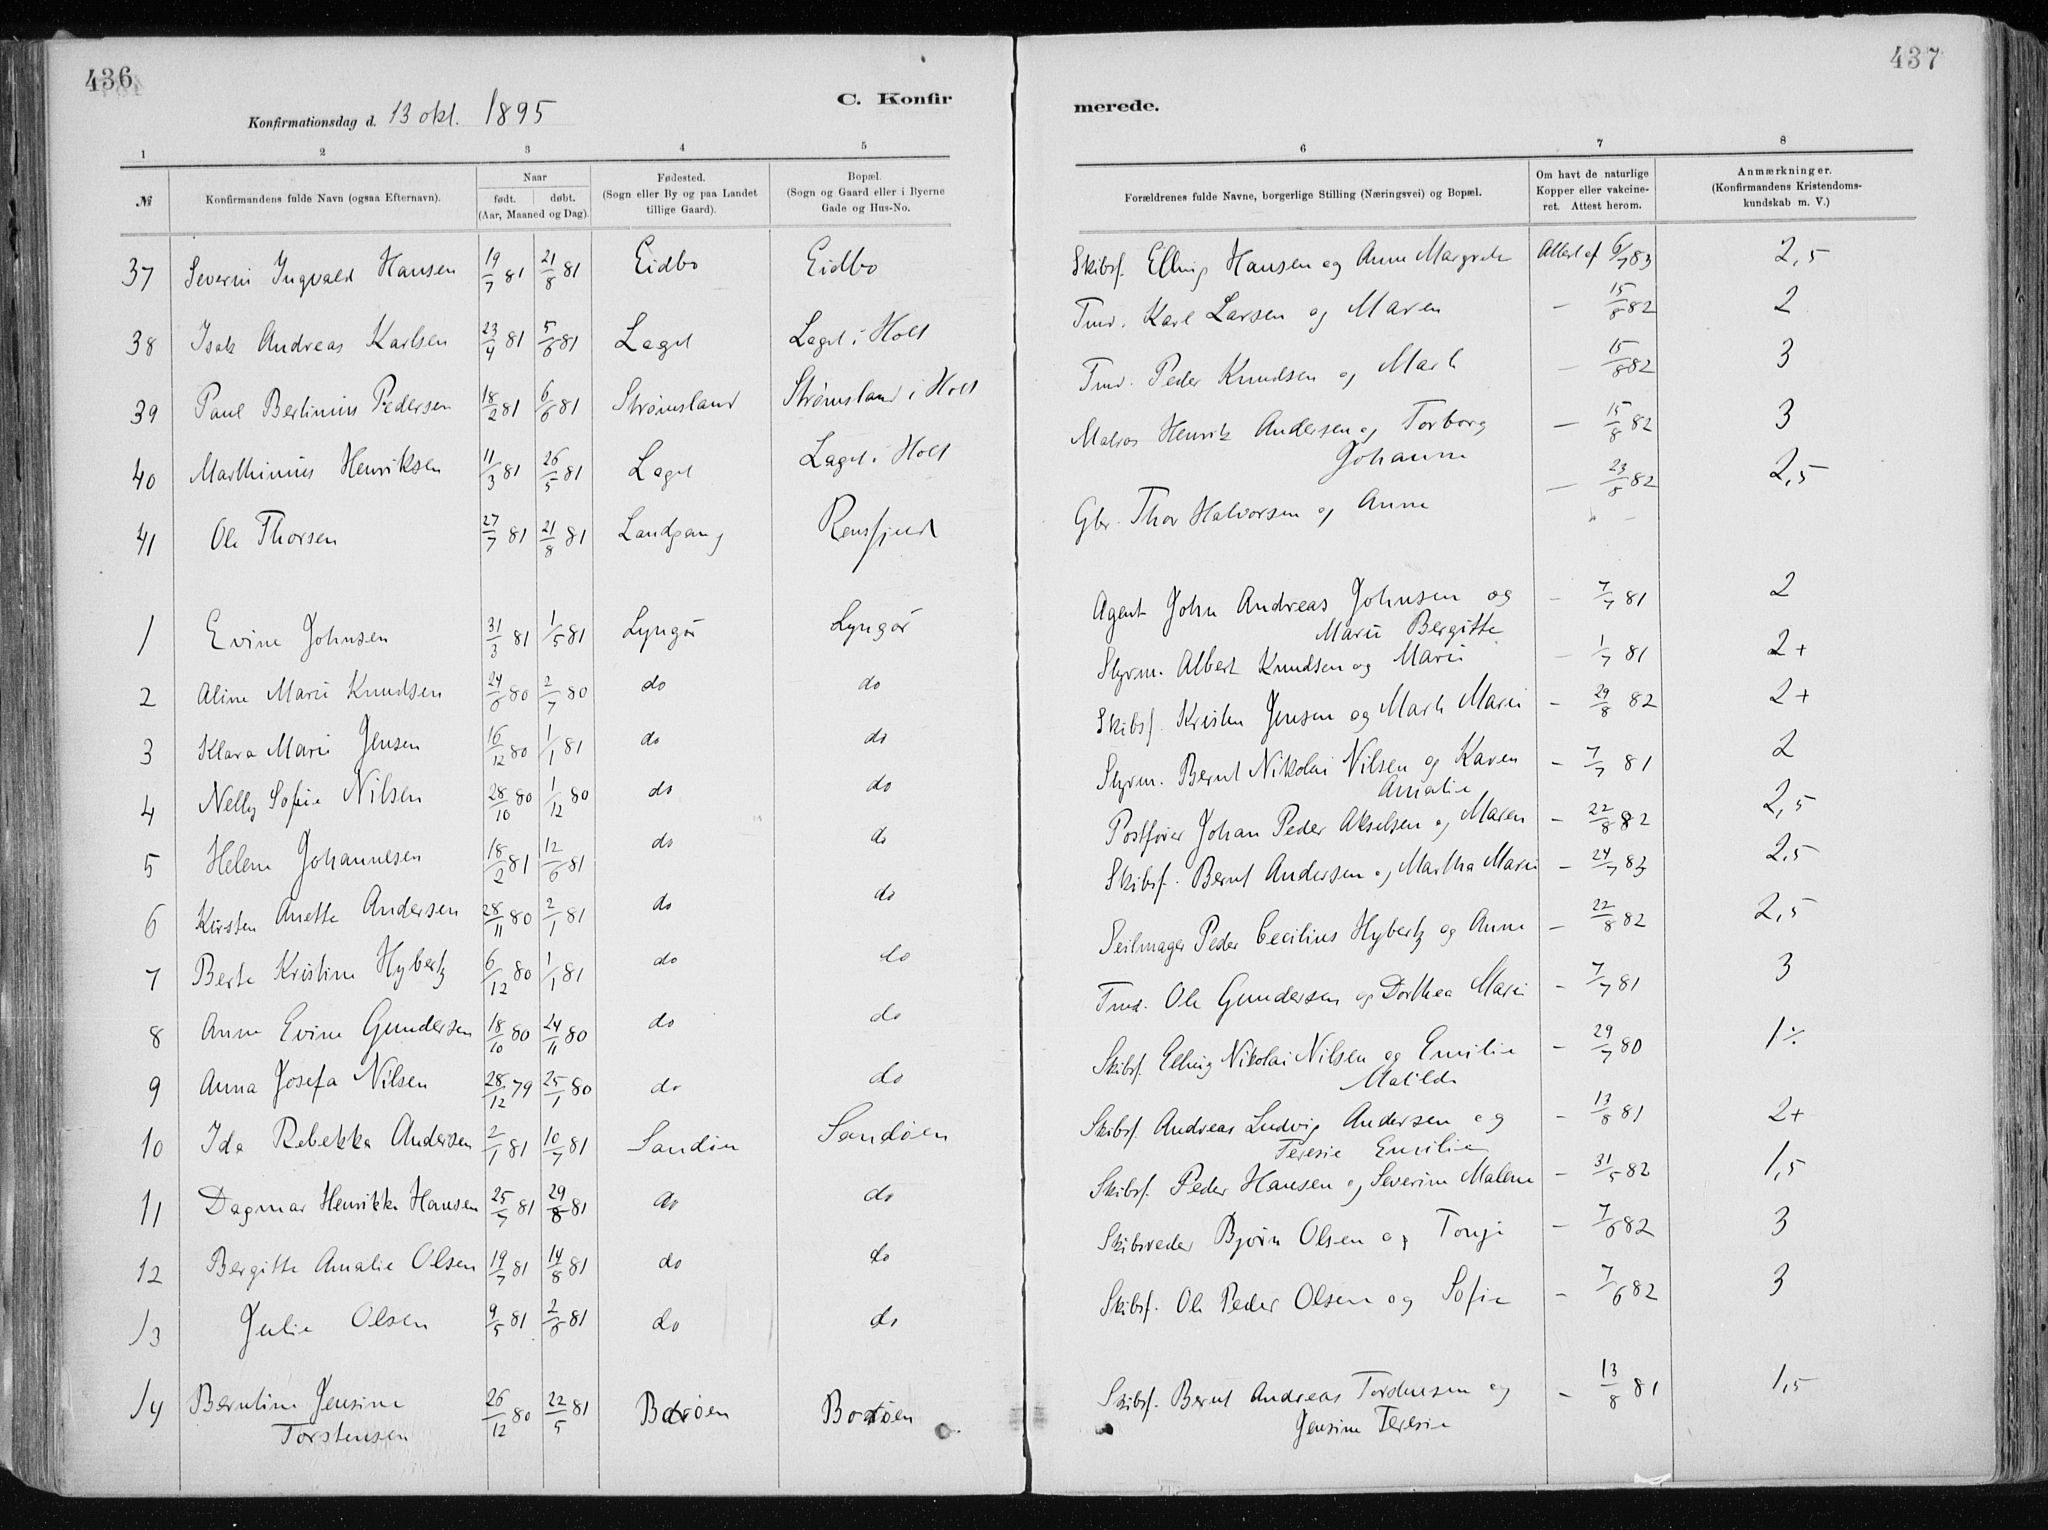 436
437
Konfirmationsdag d. 13 okt. 1895
C. Konfir
merede.
1 2 3 4 5 6 7 8
№ Konfirmandens fulde Navn (ogsaa Efternavn). Naar født. døbt. (Aar, Maaned og Dag). Fødested. (Sogn eller By og paa Landet tillige Gaard). Bopæl. (Sogn og Gaard eller i Byerne Gade og Hus-No. Forældrenes fulde Navne, borgerlige Stilling (Næringsvei) og Bopæl. Om havt de naturlige Kopper eller vakcineret. Attest herom. Anmærkninger. (Konfirmandens Kristendomskundskab m. V.)
37 Severin Ingvald Hansen 19/7 81 21/8 81 Eidbo Eidbo Skibsf. Elling Hansen og Anne Margrete Attest af 6/7 83 2,5
38 Isak Andreas Karlsen 23/4 81 5/6 81 Laget Laget i Holt Tmd. Karl Larsen og Maren – 15/8 82 2
39 Paul Bertinius Pedersen 18/2 81 6/6 81 Strømsland Strømsland i Holt Tmd. Peder Knudsen og Marte – 15/8 82 3
40 Marthinius Henriksen 11/3 81 26/5 81 Laget Laget i Holt Matros Henrik Andersen og Torborg – 15/8 82 3
Johanne
41 Ole Thorsen 27/7 81 21/8 81 Landgang Gbr. Thor Halvorsen og Anne – 23/8 82 2,5
1 Evine Johnsen 31/3 81 1/5 81 Lyngør Lyngør Agent John Andreas Johnsen og – 7/7 81 2
Marie Bergitte
2 Aline Marie Knudsen 24/6 80 2/7 80 do do Styrm. Albert Knudsen og Marie – 1/7 81 2+
3 Klara Marie Jensen 16/12 80 1/1 81 do do Skibsf. Kristen Jensen og Marte Marie – 29/8 82 2+
4 Nelly Sofie Nilsen 28/10 80 1/12 80 do do Styrm. Bernt Nikolai Nilsen og Karen – 7/7 81 2
Amalie
5 Helene Johannesen 18/2 81 12/6 81 do do Postfører Johan Peder Akselsen og Maren – 22/8 82 2,5
6 Kirsten Anette Andersen 28/11 80 2/1 81 do do Skibsf. Bernt Andersen og Martha Marie – 24/7 83 2,5
7 Berte Kristine Hybertz 6/12 80 1/1 81 do do Seilmager Peder Cecilius Hybertz og Anne – 22/8 82 2,5
8 Anne Evine Gundersen 18/10 80 24/11 80 do do Tmd. Ole Gundersen og Dorthea Marie – 7/7 81 3
9 Anna Josefa Nilsen 28/12 79 25/1 80 do do Skibsf. Elling Nikolai Nilsen og Emilie – 29/7 80 1÷
Matilde
10 Ida Rebekka Andersen 2/1 81 10/7 81 Sandøen Sandøen Skibsf. Andreas Ludvig Andersen og – 13/8 81 2+
Teresie Emilie
11 Dagmar Henrikke Hansen 25/7 81 29/8 81 do do Skibsf. Peder Hansen og Severine Malene – 31/5 82 1,5
12 Bergitte Amalie Olsen 19/7 81 14/8 81 do do Skibsreder Bjørn Olsen og Tonje – 7/6 82 3
13 Julie Olsen 9/5 81 2/6 81 do do Skibsf. Ole Peder Olsen og Sofie – 7/6 82 3
14 Berntine Jensine 26/12 80 22/5 81 Borøen Borøen Skibsf. Bernt Andreas Torstensen og – 13/8 81 1,5
Torstensen Jensine Teresie